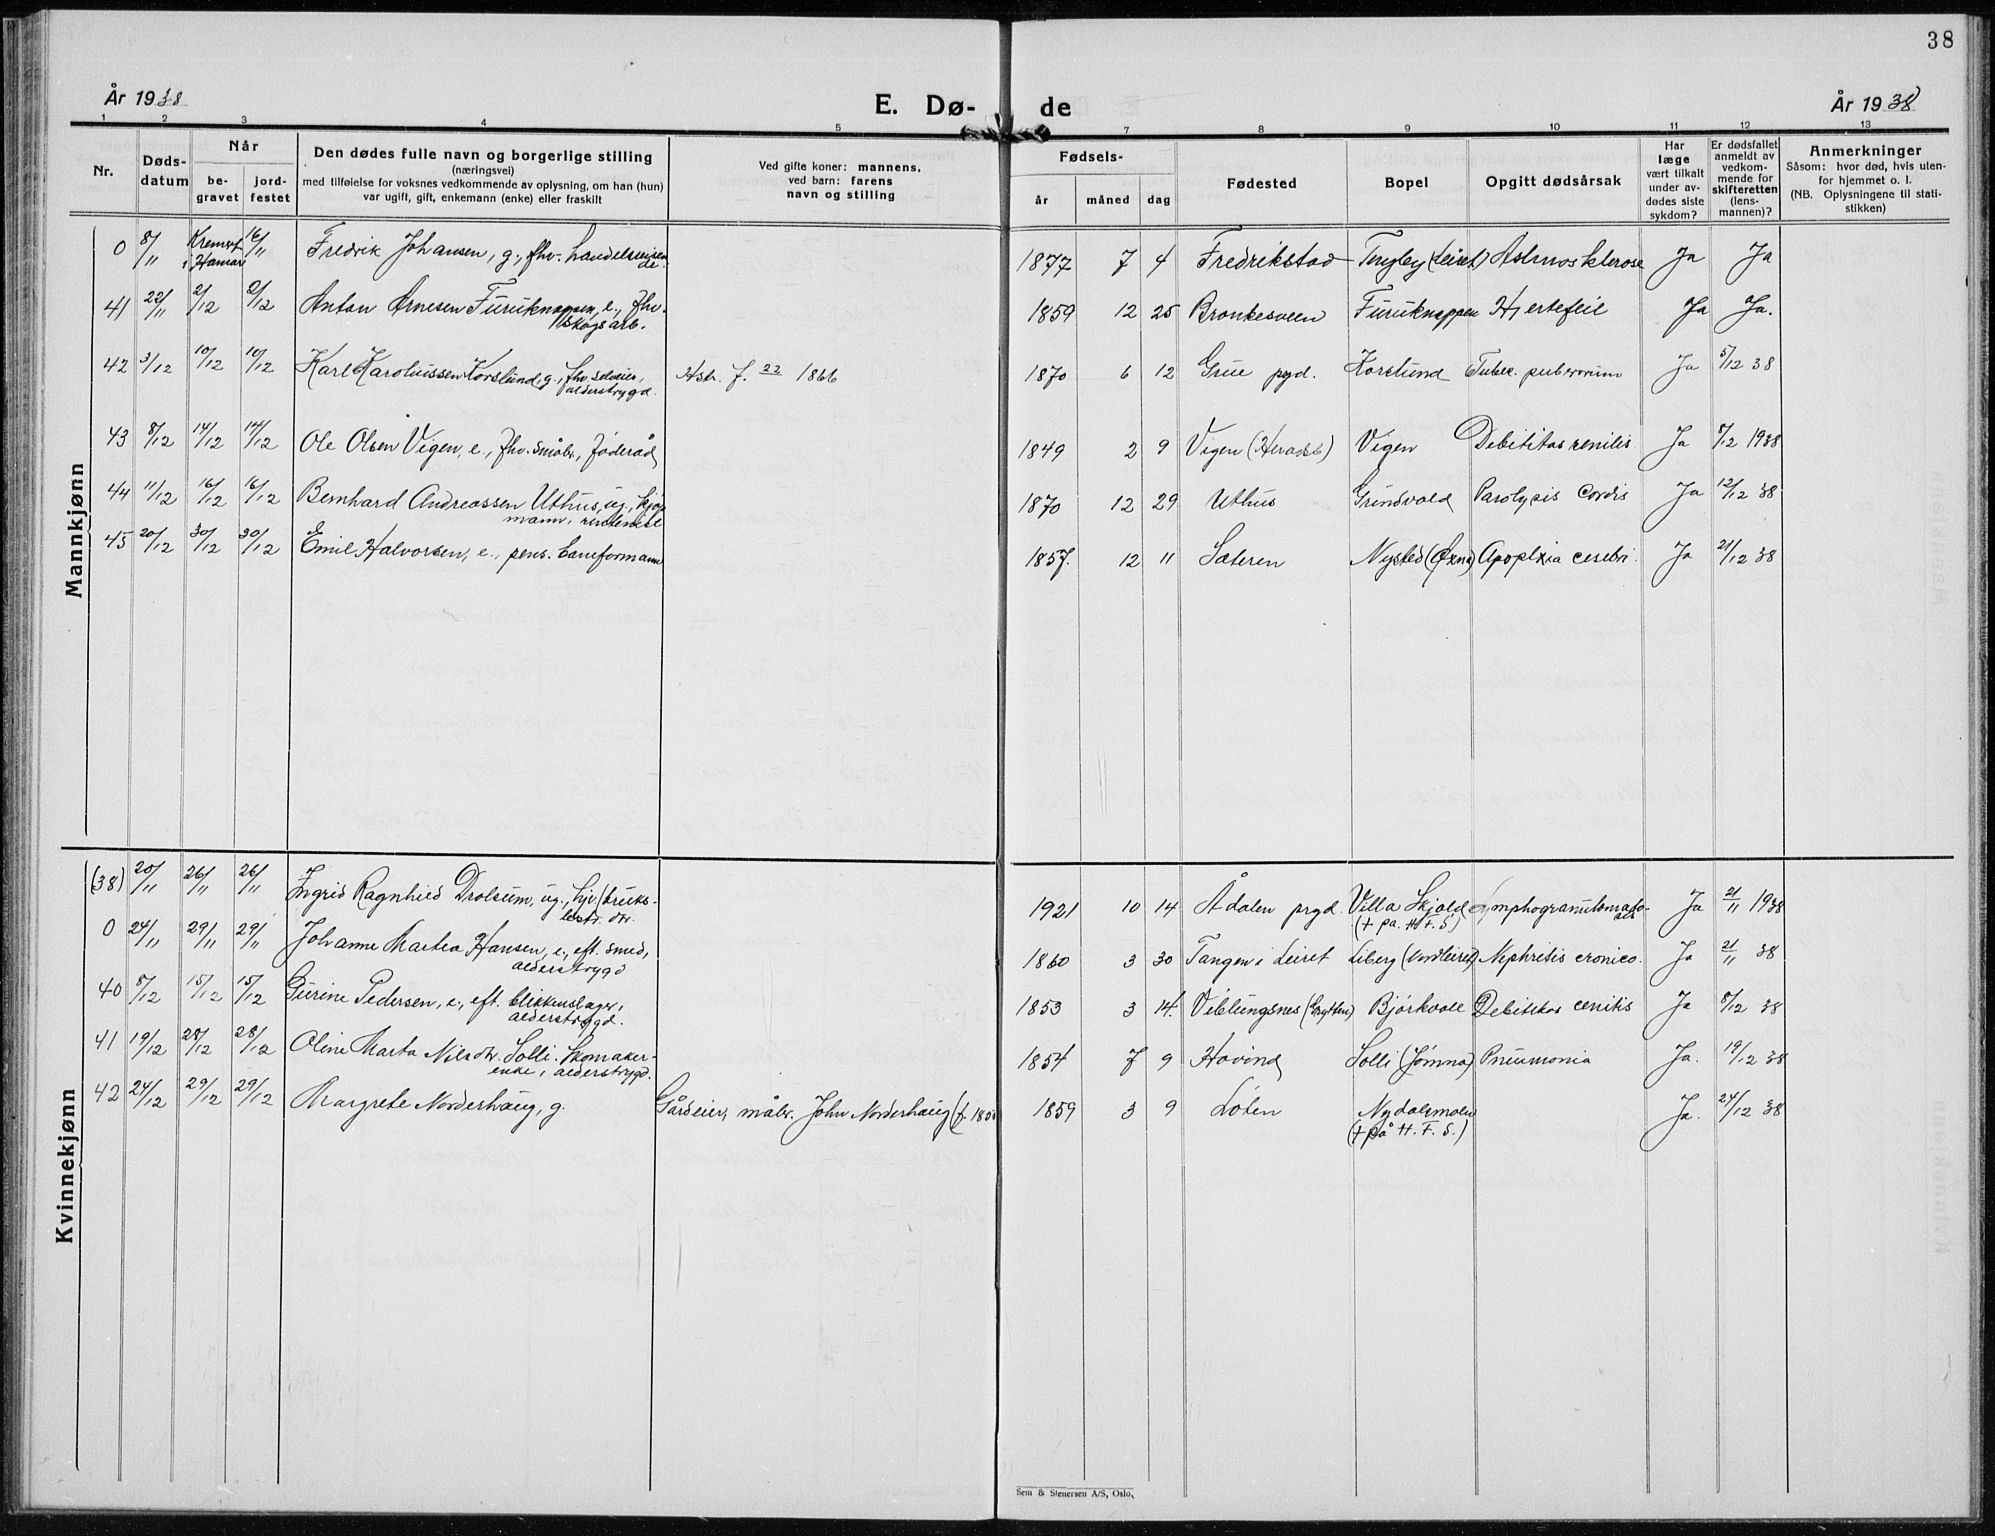 38
År 1938
E. Dø-
de
År 1938
1 2 3 4 5 7 8 9 10 11 12 13
Nr.
Døds-
datum
Når
be-
gravet
jord-
festet
Den dødes fulle navn og borgerlige stilling
(næringsvei)
med tilføielse for voksnes vedkommende av oplysning, om han (hun)
var ugift, gift, enkemann (enke) eller fraskilt
Ved gifte koner: mannens,
ved barn: farens
navn og stilling
Fødsels-
år
måned
dag
Fødested
Bopel
Opgitt dødsårsak
Har
læge
vært tilkalt
under av-
dødes siste
sykdom?
Er dødsfallet
anmeldt av
vedkom-
mende for
skifteretten
(lens-
mannen)?
Anmerkninger
Såsom: hvor død, hvis uten-
for hjemmet o. l.
(NB. Oplysningene til stati-
stikken)
Mannkjønn
0 8/11 Kremert i Hamar 16/11 Fredrik Johansen, g., fhv. handelsreisende. 1877 7 4 Fredrikstad Tingby (Leiret) Ja Ja
41 22/11 2/12 2/12 Anton Arnesen Furuknappen, e., fhv. skogsarb. 1859 12 25 Bronkesveen Furuknappen Hjertefeil Ja Ja.
42 3/12 10/12 10/12 Karl Karoliussen Korslund, g., fhv. selveier, alderstrygd. Hstr. f. 22 1866 1870 6 12 Grue pgd. Korslund Tuber. Ja 5/12 38
43 8/12 14/12 14/12 Ole Olsen Vegen, e., fhv. småbr., føderåd 1849 2 9 Vegen (Heradsb) Vegen Debilitas senilis. Ja 9/12 1938
44 11/12 16/12 16/12 Bernhard Andreassen Uthus, ug., kjøpmann, 1870 12 29 Uthus Grindvold Paralysis Cordis Ja 12/12 38
45 20/12 30/12 30/12 Emil Halvorsen, e., pens. baneformann 1857. 12 11 Sæteren Nysted (Øxna) Apoplexia cerebri. Ja 21/12 38
Kvinnekjønn
(38) 20/11 26/11 26/11 Ingrid Ragnhild Drolsum, ug., hjv. (bruksbestr. dtr. 1921 10 14 Ådalen prgd. Villa Skjold (+ på H. F. S.) Lymphogranulomatosis Ja 21/11 1938
0 24/11 29/11 29/11 Johanne Martea Hansen, e., eft. smed, alderstrygd 1860 3 30 Tangen i Leiret Liberg (Nordleiret) Nephritis cronico. Ja 21/11 38
40 8/12 15/12 15/12 Gurine Pedersen, e., eft. blikkenslager, alderstrygd. 1853 3 14. Veblungsnes (Grytten) Bjørkvoll Debilitas senilis Ja 8/12 38
41 19/12 28/12 28/12 Oline Marta Nilsdtr. Solli. Skomakerenke, alderstrygd. 1854 7 9 Hovind Solli (Jømna) Pneumonia Ja. 19/12 38
42 24/12 29/12 29/12 Margrete Norderhaug, g. Gårdeier, målr. John Norderhaug 1859 3 9 Løten Nydalsmoen (+ på H. F. S.) Ja. 24/12 38
Sem & Stenersen A/S, Oslo.